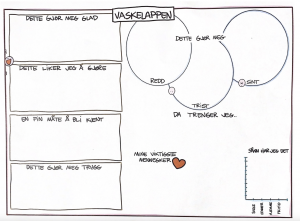 VASKELAPPEN
DETTE GJØR MEG GLAD
DETTE LIKER JEG Å GJØRE
EN FIN MÅTE Å BLI KJENT
DETTE GJØR MEG TRYGG
DETTE GJØR MEG
REDD
SINT
TRIST
DA TRENGER JEG..
MINE VIKTIGSTE
MENNESKER
SÅNN HAR JEG DET